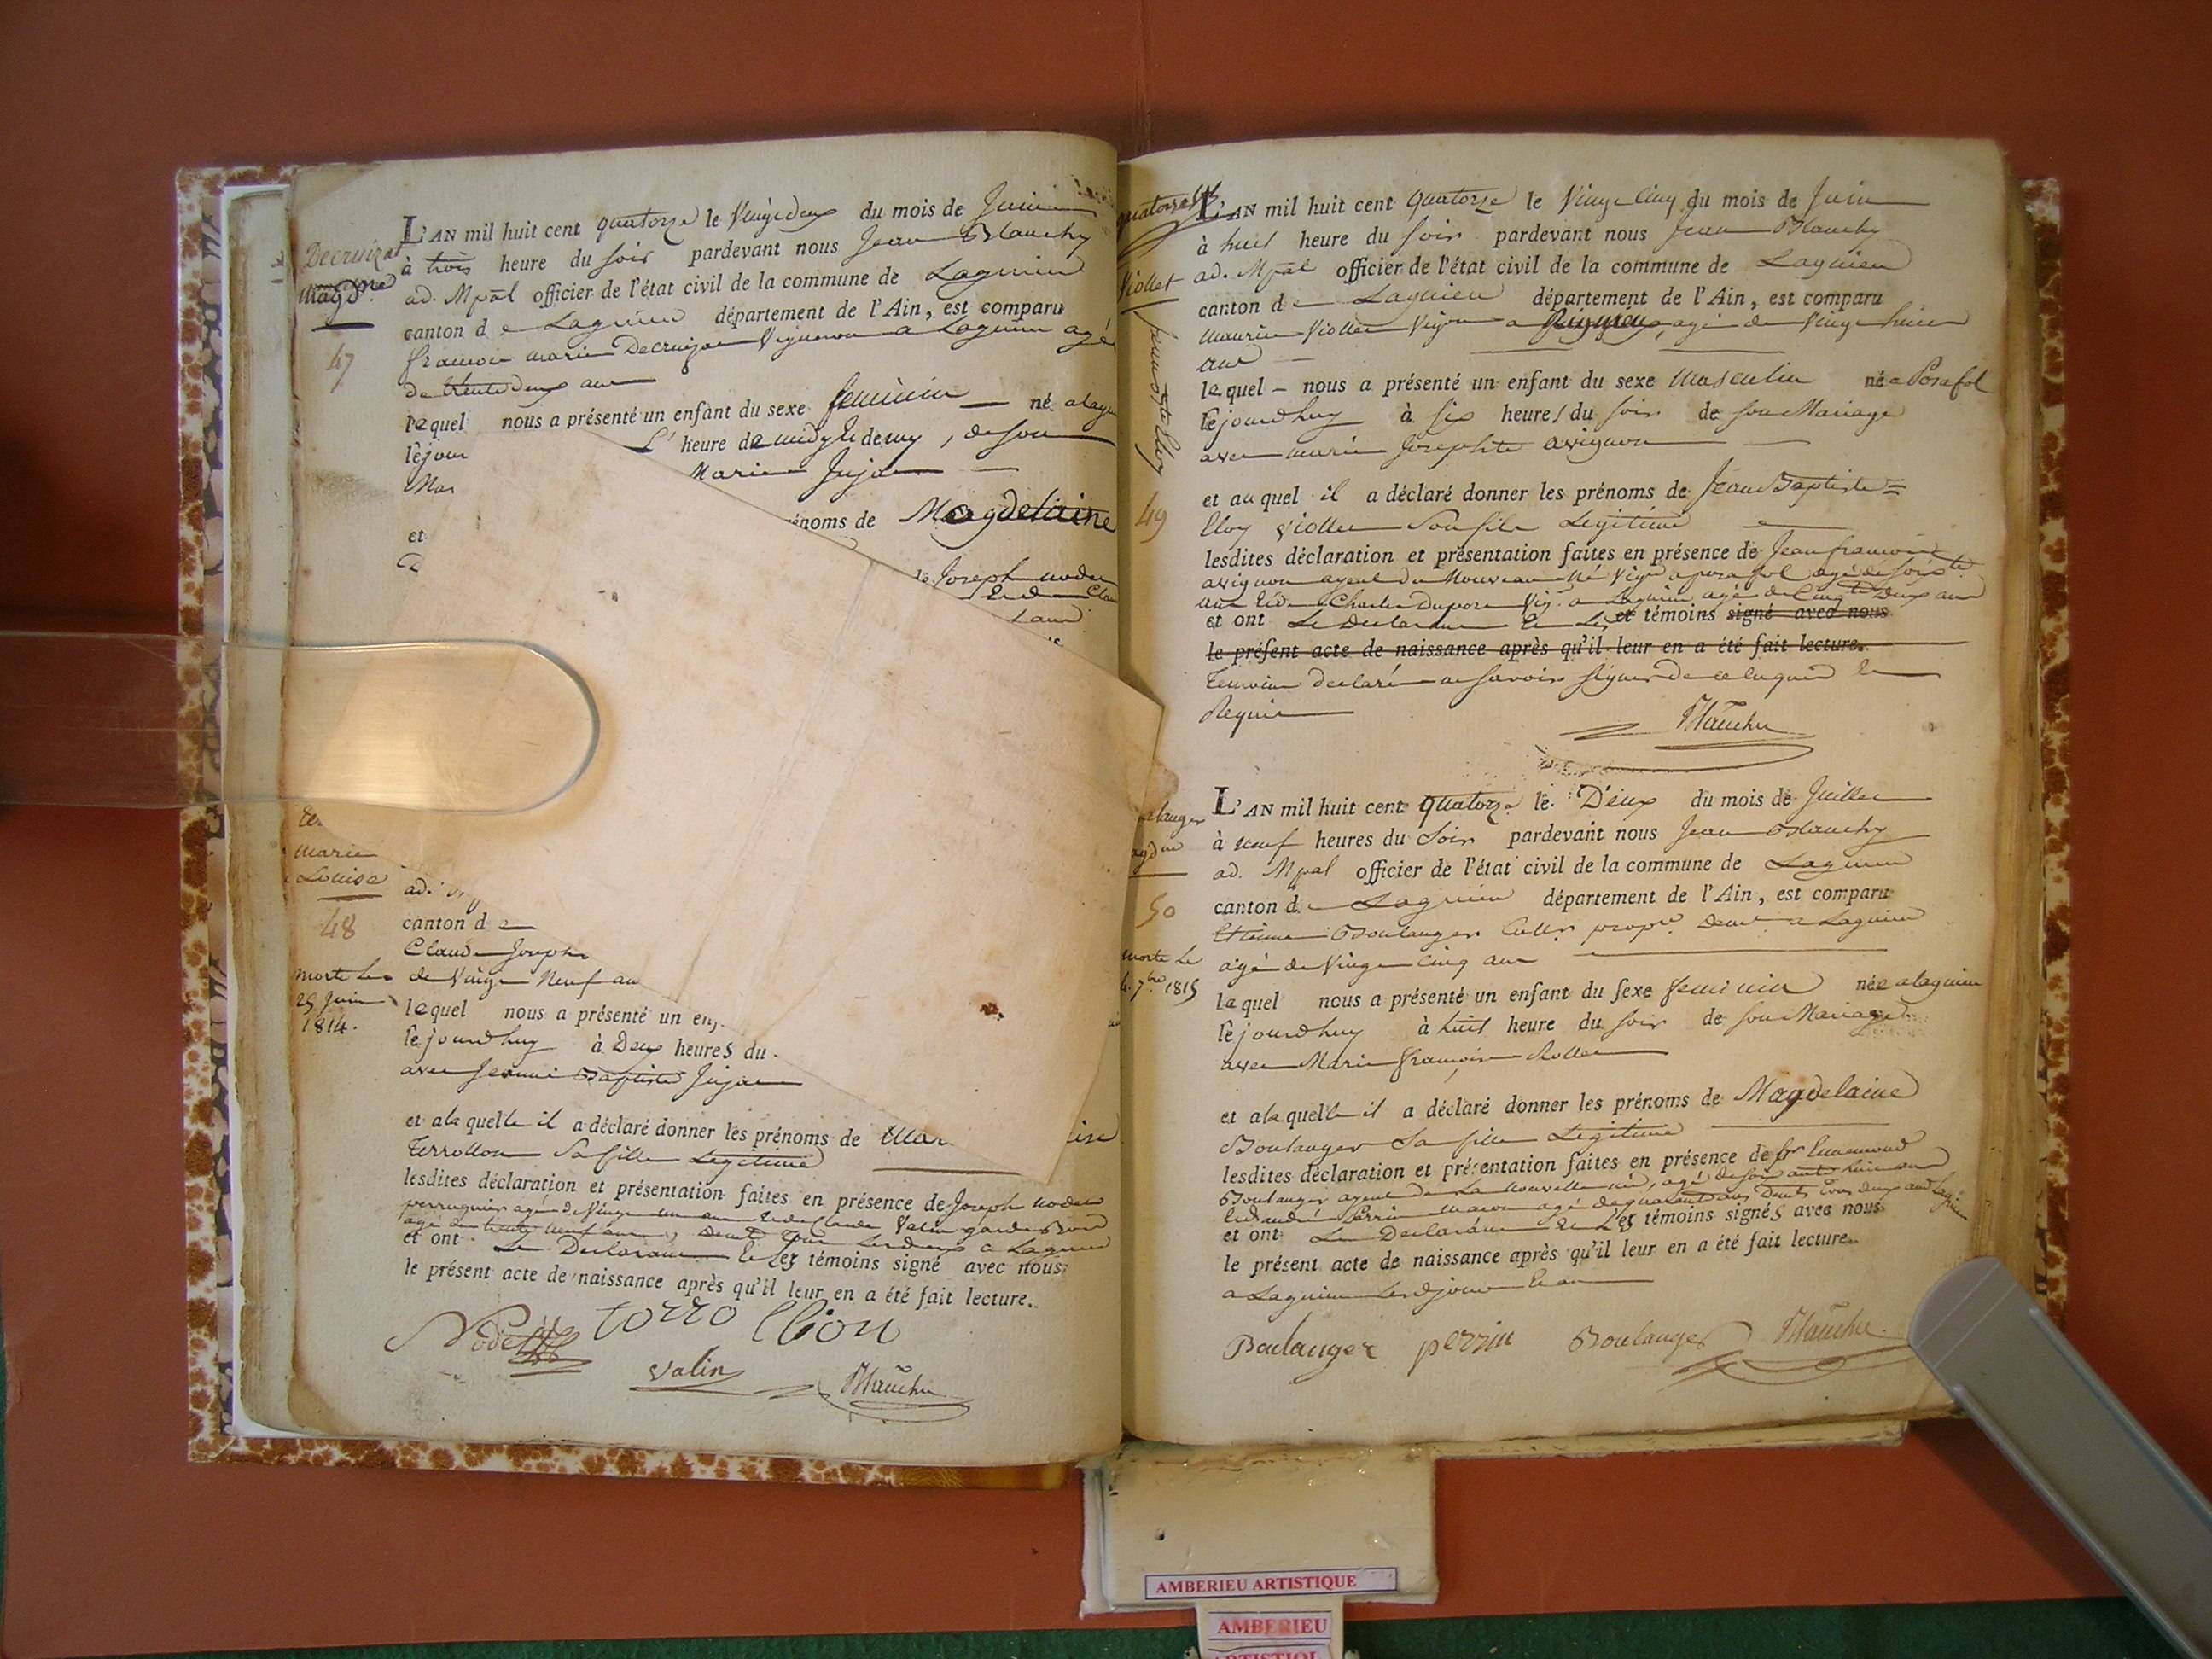 Decruizat
Magd.ne
47
L'AN mil huit cent quatorze le Vingt deux du mois de Juin
à trois heure du soir pardevant nous Jean Blanchy
ad. Mpāl officier de l'état civil de la commune de Lagnieu
canton de Lagnieu département de l'Ain, est comparu
francois marie Decruizat Vigneron a Lagnieu agé
de trente deux ans
lequel nous a présenté un enfant du sexe feminin né a lag
lejour L' heure de midy & demy, de son
Mar Marie Jujat
et énoms de Magdelaine
de Joseph nodet
marie
Louise
48
morte le
25 Juin
1814.
ad.
canton de
Claude Joseph
de Vingt Neuf an
lequel nous a présenté un en
lejourdhuy à Deux heures du
avec Jeanne Baptiste Jujat
et alaquelle il a déclaré donner les prénoms de Mar ise
Terrollion Sa fille Legitime
lesdites déclaration et présentation faites en présence de Joseph nodet
perruquier agé de Vingt un ans & de Claude Valin garde
agé de trente neuf ans, tous les deux a Lagnieu
et ont Le Declarant & Les témoins signé avec nous
le présent acte de naissance après qu'il leur en a été fait lecture.
Nodet torro llion
Valin Blanchy
quatorze
Viollet
jean bte Eloy
49
L'AN mil huit cent quatorze le Vingt Cinq du mois de Juin
à huit heure du soir pardevant nous Jean Blanchy
ad. Mpāl officier de l'état civil de la commune de Lagnieu
canton de Lagnieu département de l'Ain, est comparu
Maurice Viollet Vigon a agé de Vingt huit
ans
lequel nous a présenté un enfant du sexe Masculin né a Posafol
lejourdhuy à six heures du soir de son Mariage
avec marie Josephte avignon
et auquel il a déclaré donner les prénoms de Jean Baptiste =
Eloy Viollet Son fils Legitime
lesdites déclaration et présentation faites en présence de Jean francois
avignon ayeul du Nouveau Né Vign a posa fol agé de soix.te
ans & de Charles Dupore Vig. a Lagnieu agé de Cinq.te Deux ans
et ont Le Declarant & Les témoins signé avec nous
le présent acte de naissance après qu'il leur en a été fait lecture.
Temoins declaré ne savoir signer de ce enquis &
Requis
Blanchy
langer
agdne
50
morte le
4. 7bre 1815
L'AN mil huit cent quatorze le Deux du mois de Juillet
à neuf heures du Soir pardevant nous Jean Blanchy
ad. Mpal officier de l'état civil de la commune de Lagnieu
canton de Lagnieu département de l'Ain, est comparu
Etienne Boulanger Cultr. propre. Demt. a Lagnieu
agé de Vingt cinq ans
lequel nous a présenté un enfant du sexe feminin née a lagnieu
lejourdhuy à huit heure du soir de son Mariage
avec Marie françoise Rollet
et alaquelle il a déclaré donner les prénoms de Magdelaine
Boulanger Sa fille Legitime
lesdites déclaration et présentation faites en présence de Sr Ennemond
Boulanger ayeul de La Nouvelle né, agé de soixante huit ans
& d'andré Perrin macon agé de quarante ans Demts tous deux aud Lagnieu
et ont Le Declarant & Les témoins signés avec nous
le présent acte de naissance après qu'il leur en a été fait lecture.
a Lagnieu Les d jour & an
Boulanger perrin Boulanger Blanchy
AMBERIEU ARTISTIQUE
AMBERIEU